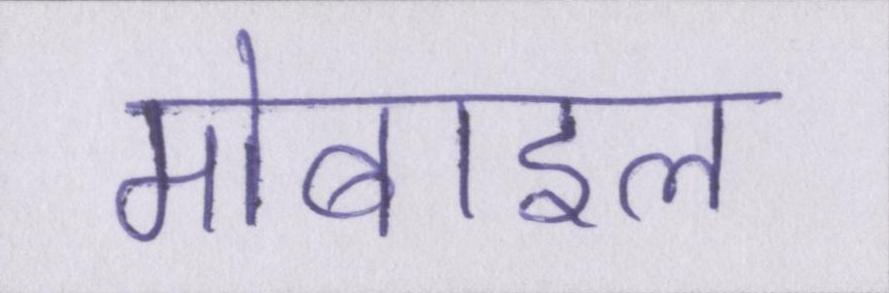 मोबाइल